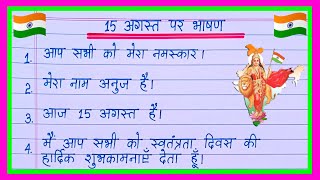 15 अगस्त पर भाषण
1. आप सभी को मेरा नमस्कार।
2. मेरा नाम अनुज है।
3. आज 15 अगस्त है।
4. मैं आप सभी को स्वतंत्रता दिवस की
हार्दिक शुभकामनाएँ देता हूँ।